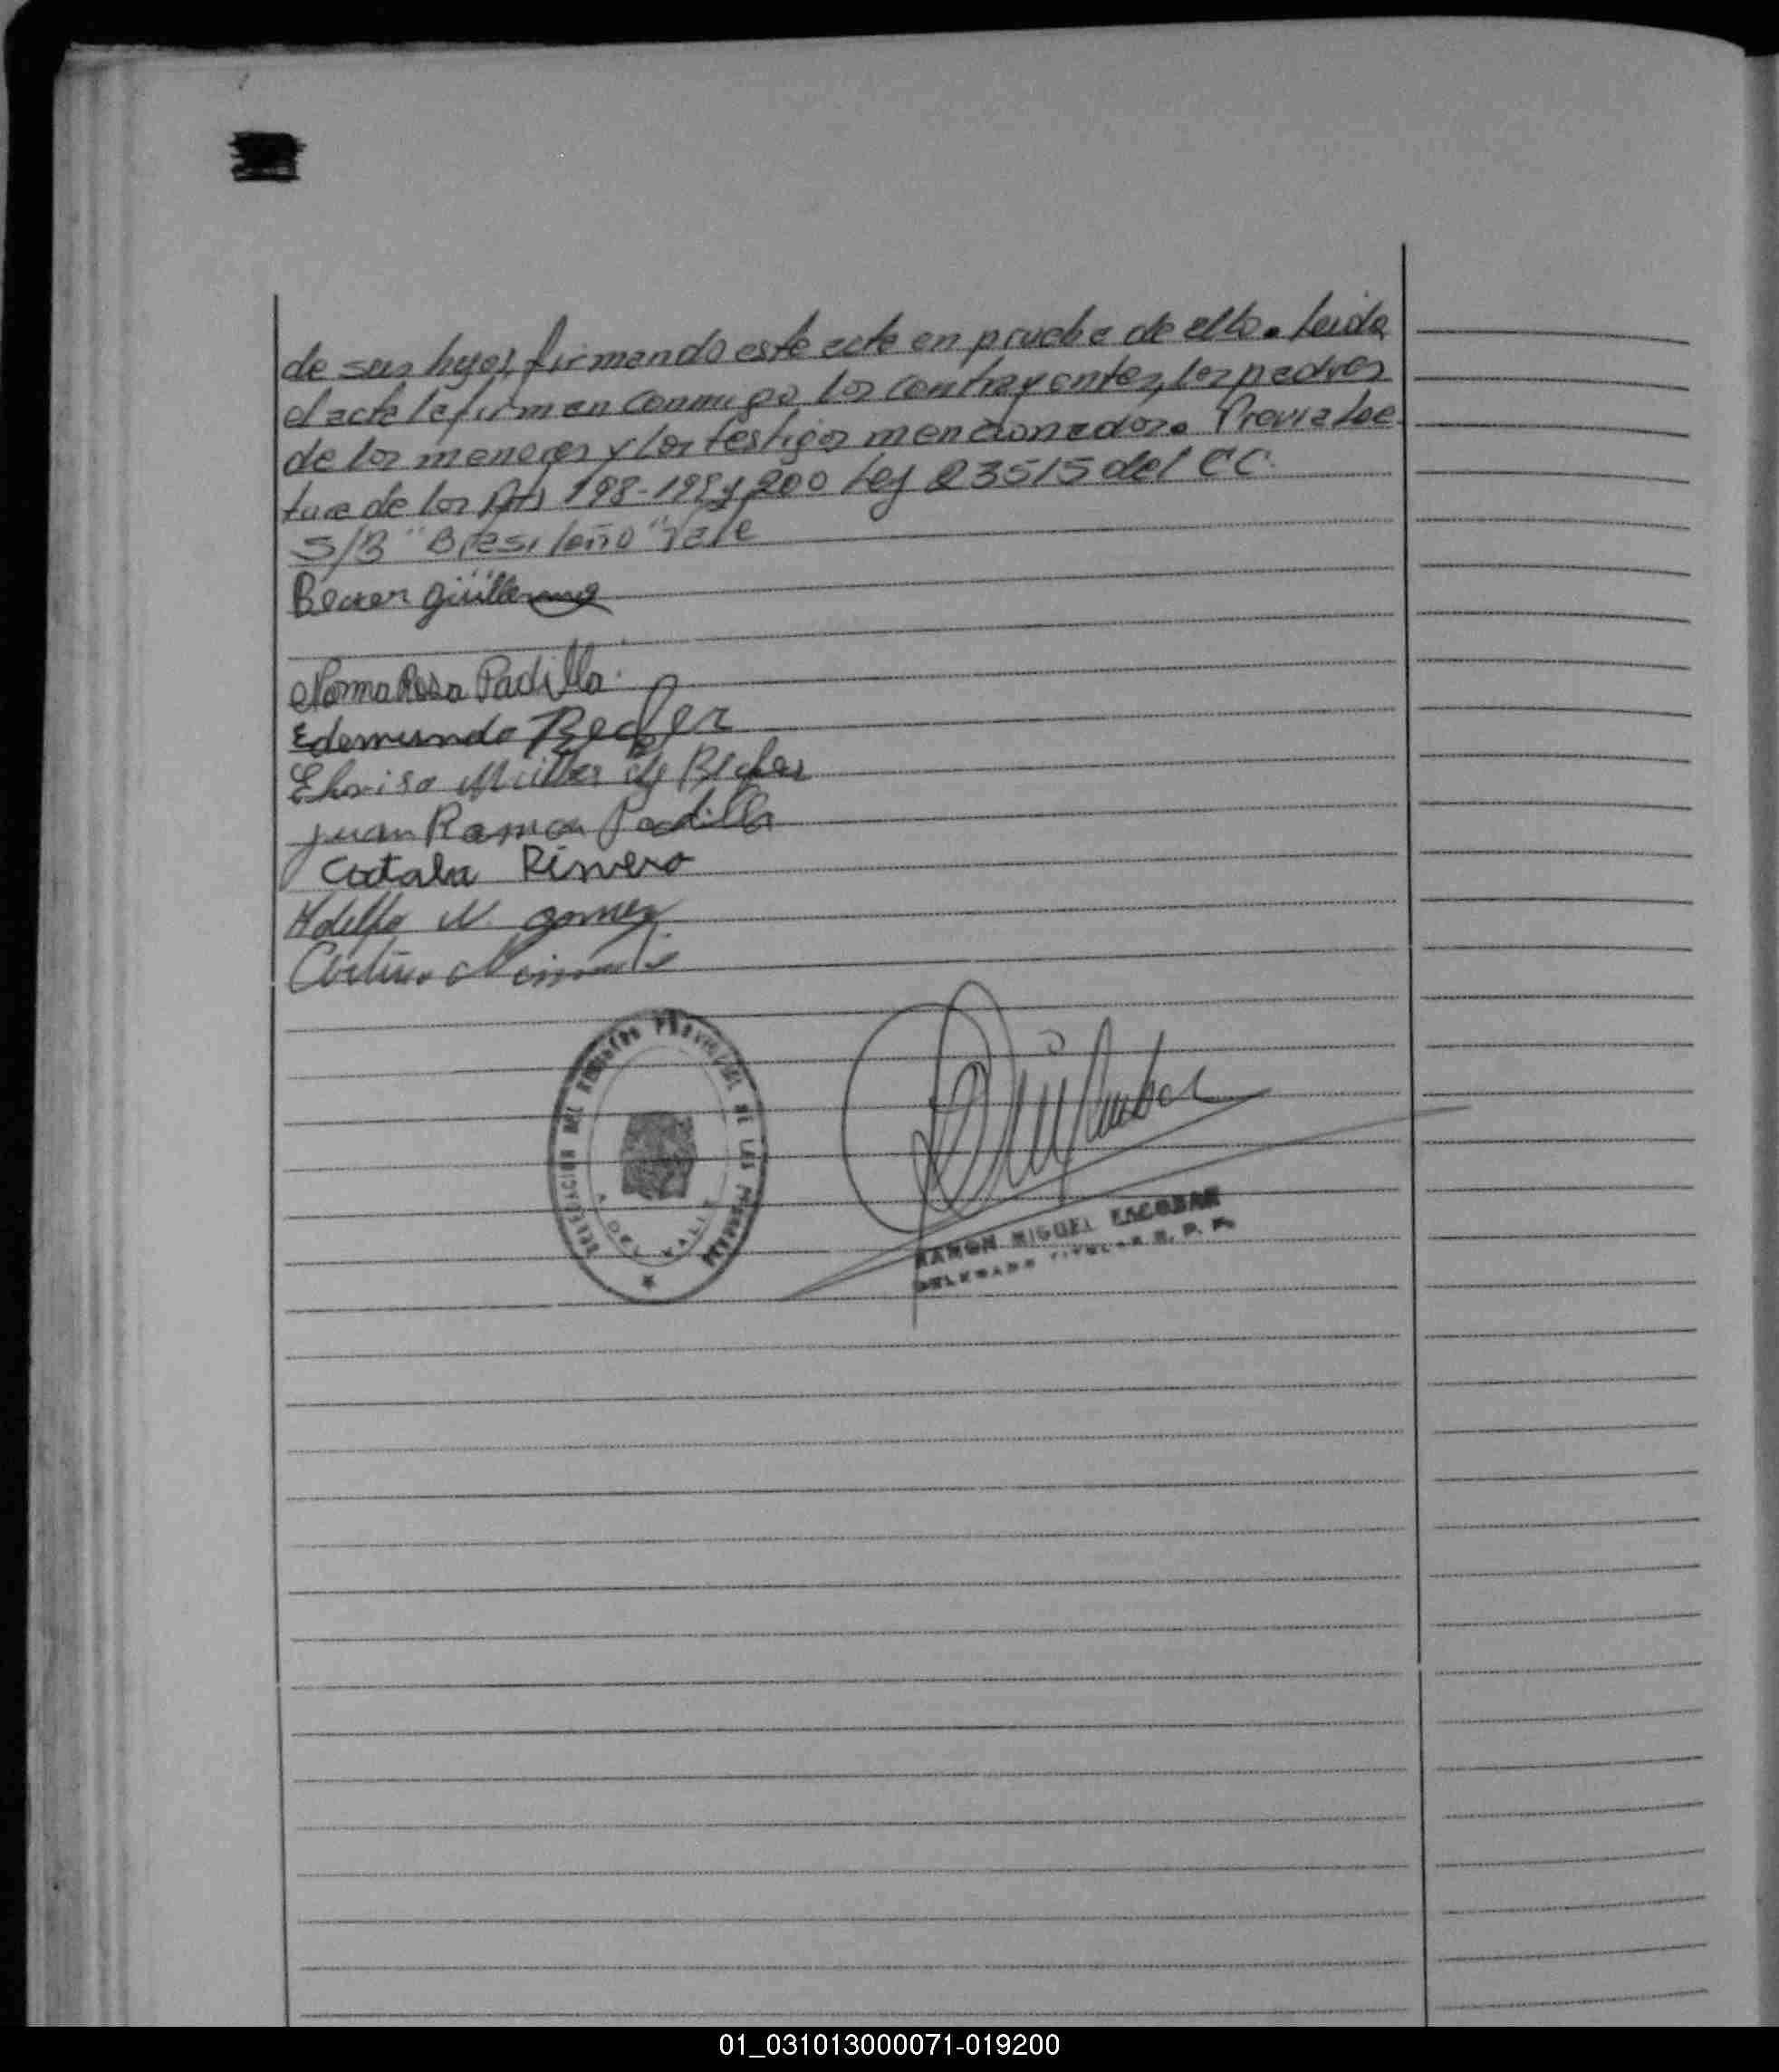 de sus hijos, firmando este acta en prueba de ello. Leida
el acta la firman conmigo los contrayentes, los padres
de los menores y los testigos mencionados. Previa lec
tura de los Arts 198-199 y 200 Ley 23515 del CC.
S/B "Brasileño" Vale
Becker Guillermo
Norma Rosa Padilla.
Edemundo Becker
de Becker
Juan Ramon Padilla
Catala Rivero
Adelfo N. Gomez
DELEGACION DEL REGISTRO PROVINCIAL DE LAS PERSONAS
RAMON MIGUEL ESCOBAR
DELEGADO TITULAR R. P. P.
01_031013000071-019200